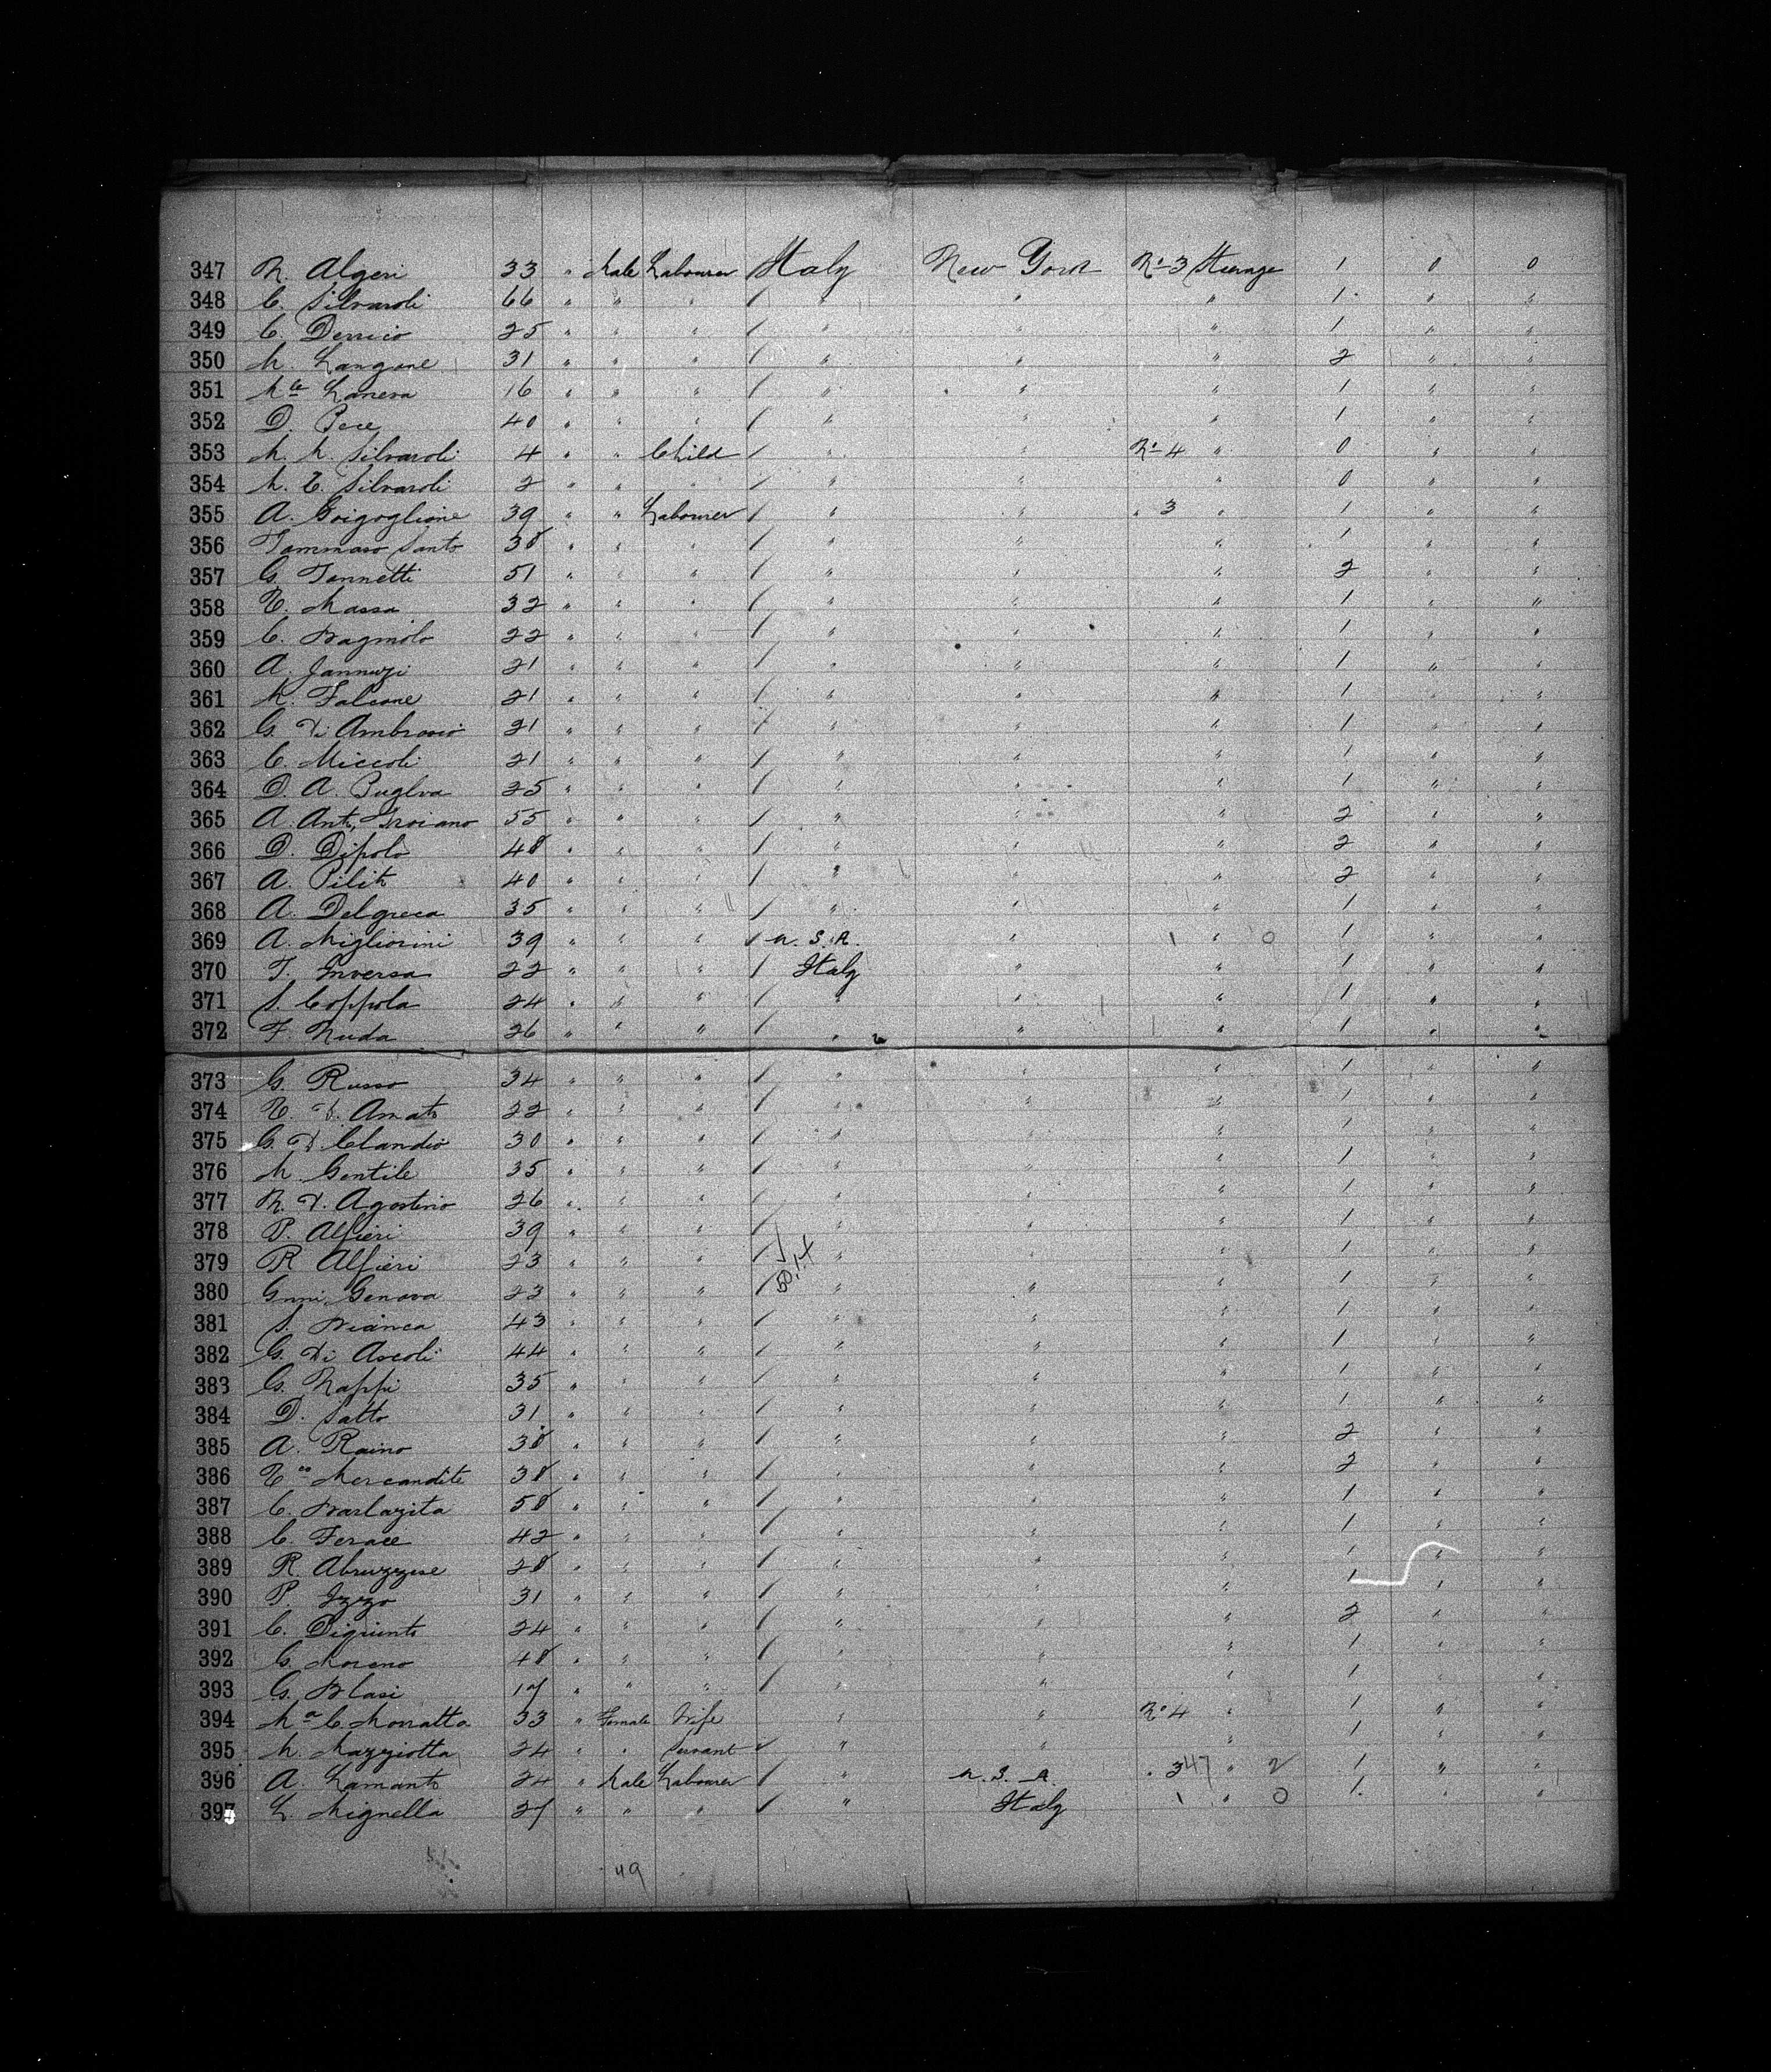 347 N. Algeri 33 " Male Labourer Italy New York No 3 Steerage 1 0 0
348 C. Silvaroli 66 " " " / " " " 1 " "
349 C. Derrico 25 " " " / " " " 1 " "
350 M. Langone 31 " " " / " " " 2 " "
351 Laneva 16 " " " / " " " 1 " "
352 D. Pece 40 " " " / " " " 1 " "
353 M. M. Silvaroli 4 " " Child / " " No 4 " 0 " "
354 M. E. Silvaroli 2 " " " / " " " 0 " "
355 A. 39 " " Labourer / " " " 3 " 1 " "
356 Tommaso Santo 38 " " " / " " " 1 " "
357 G. Iannetti 51 " " " / " " " 2 " "
358 Massa 32 " " " / " " " 1 " "
359 C. Bagnolo 22 " " " / " " " 1 " "
360 A. Jannuzi 21 " " " / " " " 1 " "
361 M. Falcone 21 " " " / " " " 1 " "
362 G. Di Ambrosio 21 " " " / " " " 1 " "
363 C. Miccoli 21 " " " / " " " 1 " "
364 D. A. 25 " " " / " " " 1 " "
365 A. Anto Troiano 55 " " " / " " " 2 " "
366 D. Dipolo 48 " " " / " " " 2 " "
367 A. Pilito 40 " " " / " " " 2 " "
368 A. Delgreca 35 " " " / " " " 1 " "
369 A. Migliorini 39 " " " / U. S. A. " 1 " 0 1 " "
370 T. Inversa 22 " " " / Italy " " 1 " "
371 S. Coppola 24 " " " / " " " 1 " "
372 F. Nuda 26 " " " / " " " 1 " "
373 G. Russo 34 " " " / " " " 1 " "
374 D. Amato 22 " " " / " " " 1 " "
375 G. D. Claudio 30 " " " / " " " 1 " "
376 M. Gentile 35 " " " / " " " 1 " "
377 N. D. Agostino 26 " " " / " " " 1 " "
378 P. Alfieri 39 " " " / " " " 1 " "
379 R. Alfieri 23 " " " / " " " 1 " "
380 Genova 23 " " " / " " " 1 " "
381 S. Bianca 43 " " " / " " " 1 " "
382 G. Di Ascoli 44 " " " / " " " 1 " "
383 G. Nappi 35 " " " / " " " 1 " "
384 D. Satto 31 " " " / " " " 1 " "
385 A. Raino 38 " " " / " " " 2 " "
386 Mercandite 38 " " " / " " " 2 " "
387 C. Barlazita 58 " " " / " " " 1 " "
388 C. Ferace 42 " " " / " " " 1 " "
389 R. Abruzzese 28 " " " / " " " 1 " "
390 P. Izzo 31 " " " / " " " 1 " "
391 C. Digiunto 24 " " " / " " " 2 " "
392 G. Moreno 48 " " " / " " " 1 " "
393 G. Blasi 17 " " " / " " " 1 " "
394 Ma C. Morratta 33 " Female Wife " " No 4 " 1 " "
395 M. Mazziotta 24 " " Servant " " " 1 " "
396 A. Lamanto 24 " Male Labourer / " U. S. A. " 3 47 " 2 1 " "
397 L. Mignella 27 " " " / " Italy 1 " 0 1 " "
49